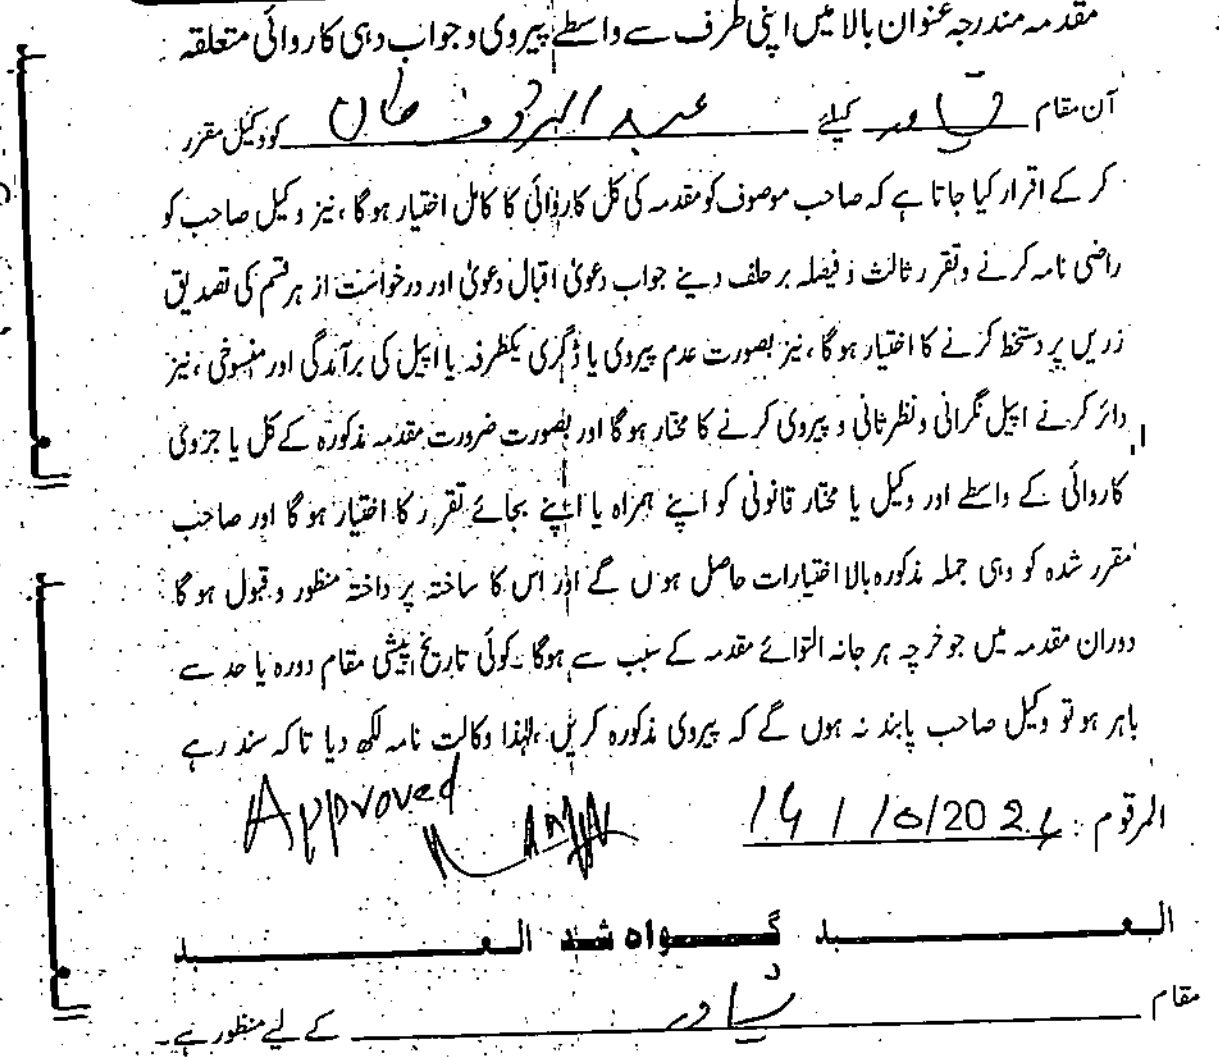 مقدمہ مندرجہ عنوان بالا میں اپنی طرف سے واسطے پیروی و جواب دہی کاروائی متعلقہ
آن مقام پشاور کیلئے عبد الرؤف خان کو وکیل مقرر
کر کے اقرار کیا جاتا ہے کہ صاحب موصوف کو مقدمہ کی کل کاروائی کا کامل اختیار ہوگا، نیز وکیل صاحب کو
راضی نامہ کرنے و تقرر ثالث و فیصلہ بر حلف دینے جواب دعویٰ اقبال دعویٰ اور درخواست از ہر قسم کی تصدیق
زریں پر دستخط کرنے کا اختیار ہوگا، نیز بصورت عدم پیروی یا ڈگری یکطرفہ یا اپیل کی برآمدگی اور منسوخی، نیز
دائر کرنے اپیل نگرانی و نظر ثانی و پیروی کرنے کا مختار ہوگا اور بصورت ضرورت مقدمہ مذکورہ کے کل یا جزوی
کاروائی کے واسطے اور وکیل یا مختار قانونی کو اپنے ہمراہ یا اپنے بجائے تقرر کا اختیار ہوگا اور صاحب
مقرر شدہ کو وہی جملہ مذکورہ بالا اختیارات حاصل ہوں گے اور اس کا ساختہ پرداختہ منظور و قبول ہوگا
دوران مقدمہ میں جو خرچہ ہرجانہ التوائے مقدمہ کے سبب سے ہوگا۔ کوئی تاریخ پیشی مقام دورہ یا حد سے
باہر ہو تو وکیل صاحب پابند نہ ہوں گے کہ پیروی مذکورہ کریں، لہٰذا وکالت نامہ لکھ دیا تاکہ سند رہے
المرقوم: 14/10/2021 Approved
العبد گواہ شد العبد
مقام پشاور کے لیے منظور ہے۔